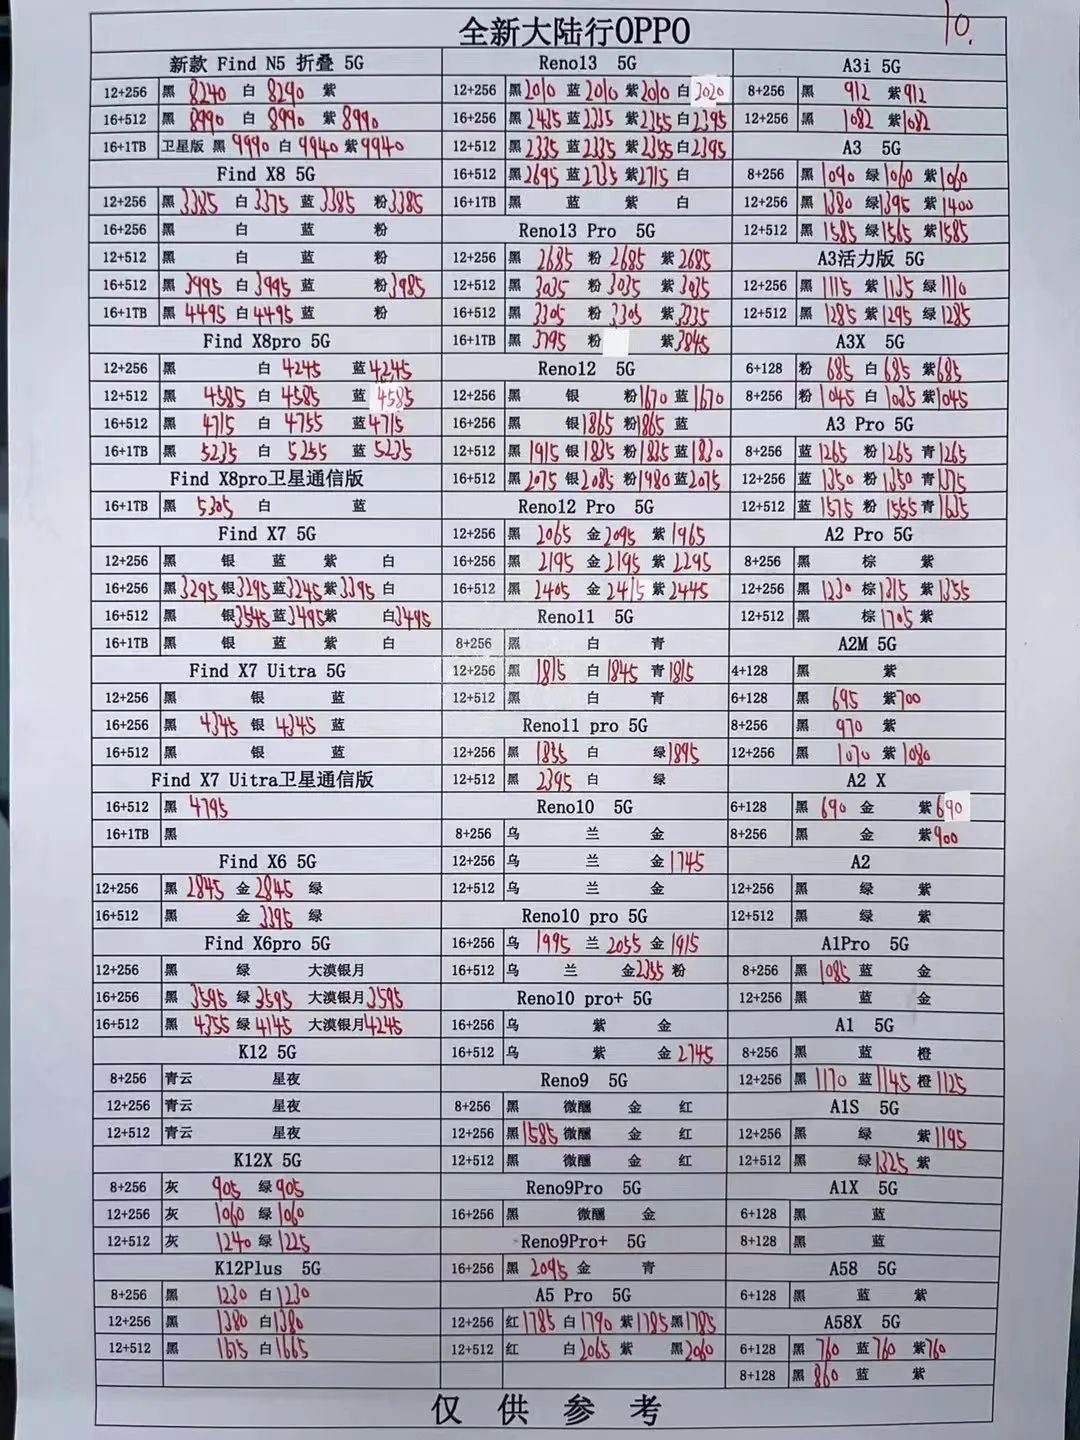 全新大陆行OPPO
10.
新款 Find N5 折叠 5G
12+256 黑 8240 白 8290 紫
16+512 黑 8990 白 8990 紫 8990
16+1TB 卫星版 黑 9990 白 9940 紫 9940
Find X8 5G
12+256 黑 3385 白 3375 蓝 3385 粉 3385
16+256 黑 白 蓝 粉
12+512 黑 白 蓝 粉
16+512 黑 3995 白 3995 蓝 粉 3985
16+1TB 黑 4495 白 4495 蓝 粉
Find X8pro 5G
12+256 黑 白 4245 蓝 4245
12+512 黑 4585 白 4585 蓝 4585
16+512 黑 4715 白 4755 蓝 4715
16+1TB 黑 5235 白 5255 蓝 5235
Find X8pro卫星通信版
16+1TB 黑 5305 白 蓝
Find X7 5G
12+256 黑 银 蓝 紫 白
16+256 黑 3295 银 3295 蓝 3245 紫 3395 白
16+512 黑 银 3545 蓝 3495 紫 白 3495
16+1TB 黑 银 蓝 紫 白
Find X7 Uitra 5G
12+256 黑 银 蓝
16+256 黑 4345 银 4345 蓝
16+512 黑 银 蓝
Find X7 Uitra卫星通信版
16+512 黑 4795
16+1TB 黑
Find X6 5G
12+256 黑 2845 金 2845 绿
16+512 黑 金 3395 绿
Find X6pro 5G
12+256 黑 绿 大漠银月
16+256 黑 3595 绿 3595 大漠银月 3595
16+512 黑 4355 绿 4145 大漠银月 4245
K12 5G
8+256 青云 星夜
12+256 青云 星夜
12+512 青云 星夜
K12X 5G
8+256 灰 905 绿 905
12+256 灰 1060 绿 1060
12+512 灰 1240 绿 1225
K12Plus 5G
8+256 黑 1230 白 1230
12+256 黑 1380 白 1380
12+512 黑 1675 白 1665
Reno13 5G
12+256 黑 2010 蓝 2010 紫 2010 白 2020
16+256 黑 2435 蓝 2335 紫 2355 白 2395
12+512 黑 2335 蓝 2335 紫 2355 白 2395
16+512 黑 2695 蓝 2735 紫 2715 白
16+1TB 黑 蓝 紫 白
Reno13 Pro 5G
12+256 黑 2685 粉 2685 紫 2685
12+512 黑 3035 粉 3035 紫 3035
16+512 黑 3305 粉 3305 紫 3335
16+1TB 黑 3795 粉 紫 3845
Reno12 5G
12+256 黑 银 粉 1670 蓝 1670
16+256 黑 银 1865 粉 1865 蓝
12+512 黑 1915 银 1835 粉 1835 蓝 1830
16+512 黑 2075 银 2085 粉 1980 蓝 2075
Reno12 Pro 5G
12+256 黑 2065 金 2095 紫 1965
16+256 黑 2195 金 2195 紫 2295
16+512 黑 2405 金 2415 紫 2445
Reno11 5G
8+256 黑 白 青
12+256 黑 1815 白 1845 青 1815
12+512 黑 白 青
Reno11 pro 5G
12+256 黑 1835 白 绿 1895
12+512 黑 2395 白 绿
Reno10 5G
8+256 乌 兰 金
12+256 乌 兰 金 1745
12+512 乌 兰 金
Reno10 pro 5G
16+256 乌 1995 兰 2055 金 1915
16+512 乌 兰 金 2355 粉
Reno10 pro+ 5G
16+256 乌 紫 金
16+512 乌 紫 金 2745
Reno9 5G
8+256 黑 微醺 金 红
12+256 黑 1585 微醺 金 红
12+512 黑 微醺 金 红
Reno9Pro 5G
16+256 黑 微醺 金
Reno9Pro+ 5G
16+256 黑 2095 金 青
A5 Pro 5G
12+256 红 1785 白 1790 紫 1785 黑 1785
12+512 红 白 2065 紫 黑 2060
A3i 5G
8+256 黑 912 紫 912
12+256 黑 1082 紫 1082
A3 5G
8+256 黑 1090 绿 1060 紫 1060
12+256 黑 1380 绿 1395 紫 1400
12+512 黑 1585 绿 1565 紫 1585
A3活力版 5G
12+256 黑 1115 紫 1135 绿 1110
12+512 黑 1285 紫 1295 绿 1285
A3X 5G
6+128 粉 685 白 685 紫 685
8+256 粉 1045 白 1035 紫 1045
A3 Pro 5G
8+256 蓝 1265 粉 1265 青 1265
12+256 蓝 1350 粉 1350 青 1375
12+512 蓝 1575 粉 1555 青 1635
A2 Pro 5G
8+256 黑 棕 紫
12+256 黑 1230 棕 1315 紫 1355
12+512 黑 棕 1705 紫
A2M 5G
4+128 黑 紫
6+128 黑 695 紫 700
8+256 黑 970 紫
12+256 黑 1070 紫 1080
A2 X
6+128 黑 690 金 紫 690
8+256 黑 金 紫 900
A2
12+256 黑 绿 紫
12+512 黑 绿 紫
A1Pro 5G
8+256 黑 1085 蓝 金
12+256 黑 蓝 金
A1 5G
8+256 黑 蓝 橙
12+256 黑 1170 蓝 1145 橙 1125
A1S 5G
12+256 黑 绿 紫 1195
12+512 黑 绿 1325 紫
A1X 5G
6+128 黑 蓝
8+128 黑 蓝
A58 5G
6+128 黑 蓝 紫
A58X 5G
6+128 黑 760 蓝 760 紫 760
8+128 黑 860 蓝 紫
仅供参考